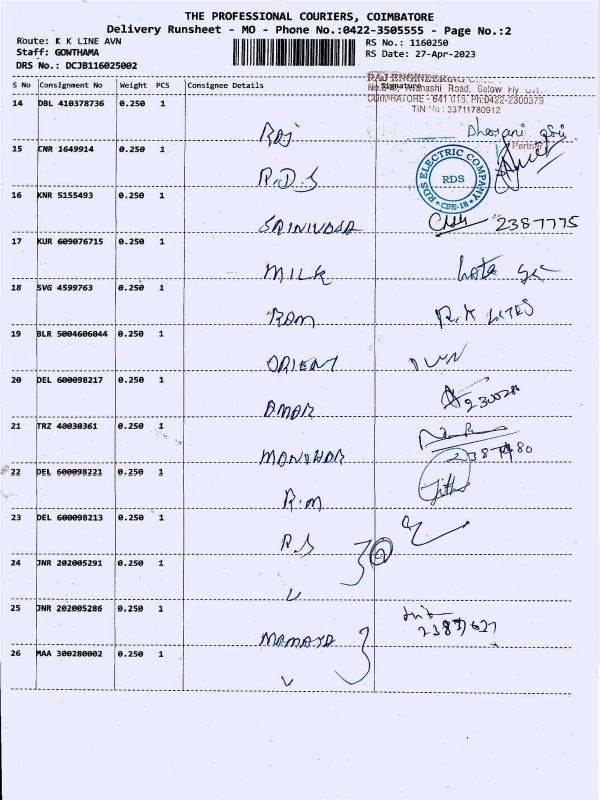 THE PROFESSIONAL COURIERS, COIMBATORE
Delivery Runsheet - MO - Phone No.:0422-3505555 - Page No.:2
Route: K K LINE AVN
RS No.: 1160250
Staff: GOWTHAMA
RS Date: 27-Apr-2023
DRS No.: DCJB116025002
S No Consignment No Weight PCS Consignee Details Signature
RAJ ENGINEERING
Avinashi Road, Below Fly
COIMBATORE - 641 018. Ph:0422-2300379
TIN No : 33711780912
14 DBL 410378736 0.250 1
RAJ
Partner
15 CNR 1649914 0.250 1
R.D.S
RDS ELECTRIC COMPANY
RDS
CBE-18
16 KNR 5155493 0.250 1
SRINIVASA 2387775
17 KUR 609076715 0.250 1
MILK
18 SVG 4599763 0.250 1
RAM R.K
19 BLR 5004606044 0.250 1
ORIENT
20 DEL 600098217 0.250 1
AMAR
21 TRZ 40030361 0.250 1
MANOHAR
22 DEL 600098221 0.250 1
R.M
23 DEL 600098213 0.250 1
R.S
24 JNR 202005291 0.250 1
25 JNR 202005286 0.250 1
MAMATA
26 MAA 300280002 0.250 1